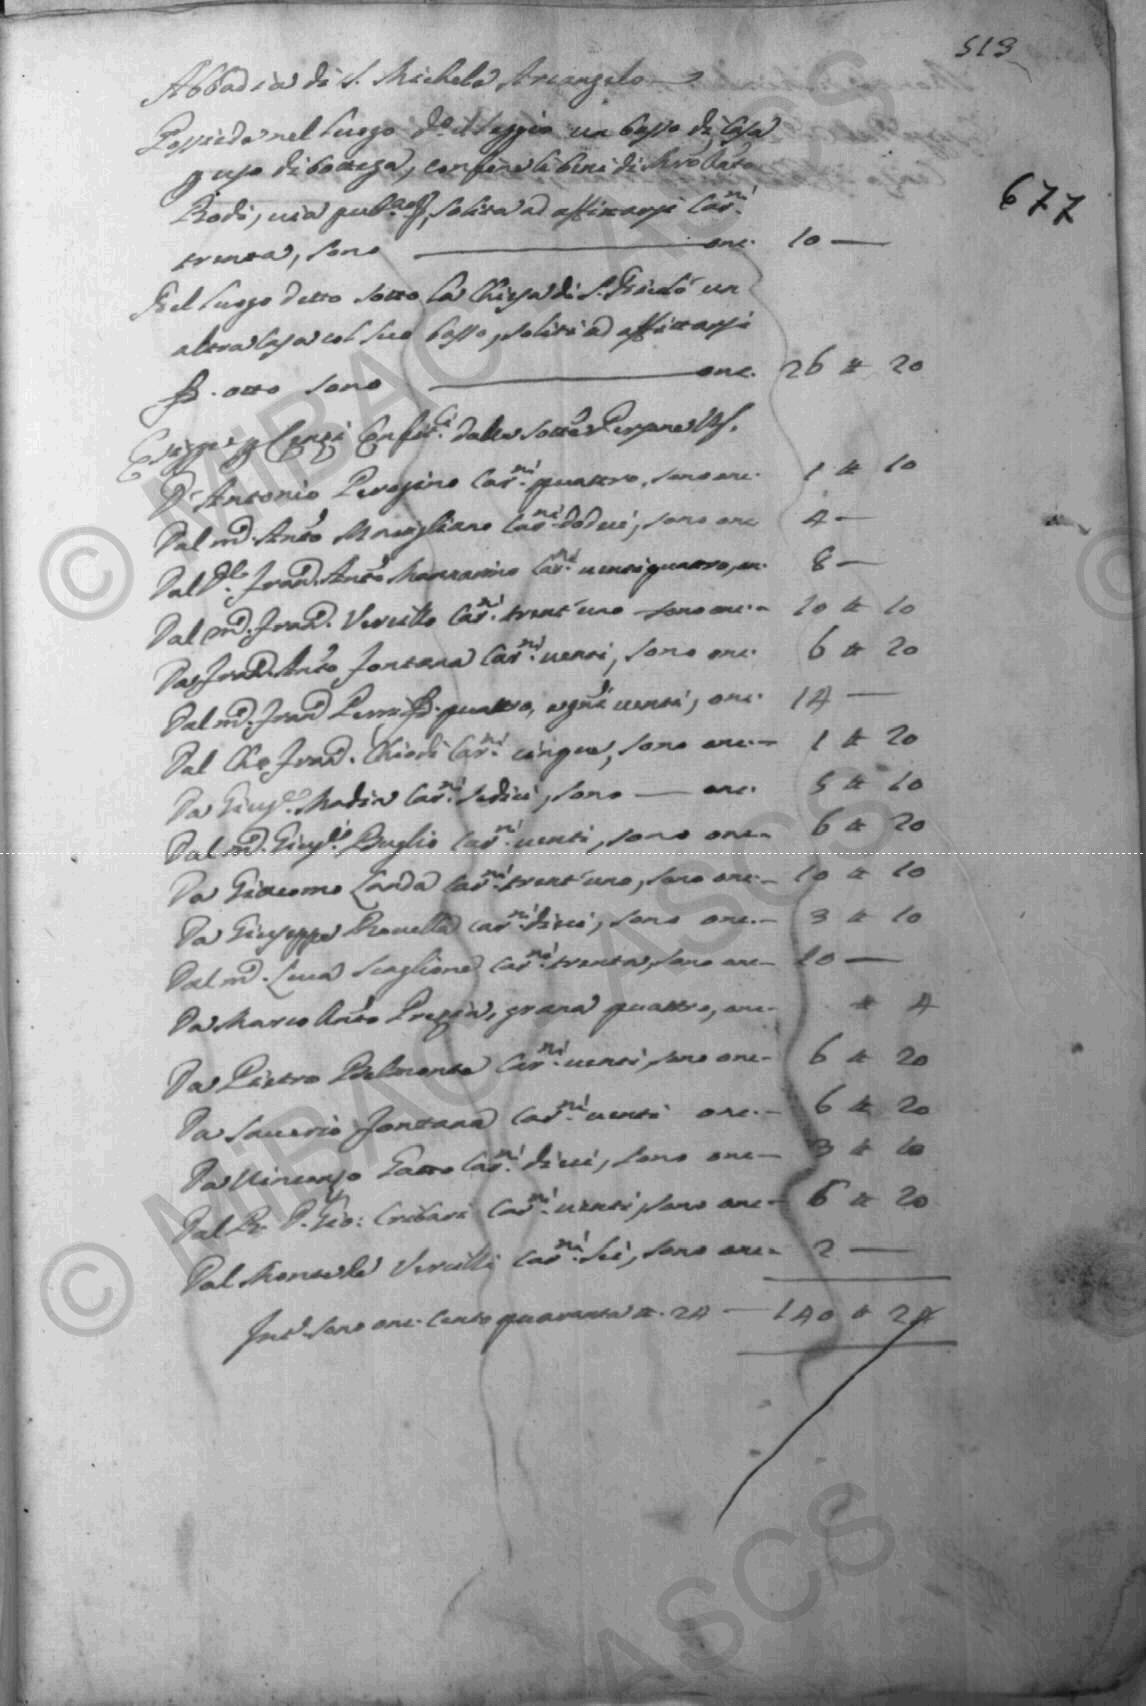 519
677
Abbadia di S. Michele Arcangelo
Possiede nel luogo d.o il Seggio un basso di casa
uso di bottega, confine li beni di
Rodi, via pub.ca, solita ad affittarsi Car.ni
trenta, sono onc. 10 —
Nel luogo detto sotto la Chiesa di S. un
altra casa col suo basso, soliti ad affittarsi
otto sono onc. 26 # 20
Esigge Censi dalle sotto Persone
D. Antonio Perogino Car.ni quattro, sono onc. 1 # 10
Dal m.co Ant.o Marigliano Car.ni dodeci, sono onc 4 —
Dal Fran.co Ant.o Mazzarino Car.ni venti quattro, on. 8 —
Dal m.co Fran.co Vercillo Car.ni trent'uno sono onc. 10 # 10
Da Fran.co Ant.o Fontana Car.ni venti, sono onc. 6 # 20
Dal m.co Fran.co quattro, e g.na venti, onc. 14 —
Dal Fran.co Chiodi Car.ni cinque, sono onc. 1 # 20
Da Gius.e Madia Car.ni sedici, sono onc. 5 # 10
Dal m.co Gius.e Puglio Car.ni venti, sono onc. 6 # 20
Da Giacomo Landa Car.ni trent'uno, sono onc. 10 # 10
Da Giuseppe Car.ni dieci, sono onc. 3 # 10
Dal m.co Luca Scaglione Car.ni trenta, sono onc 10 —
Da Marco Ant.o grana quattro, onc. # 4
Da Pietro Belmonte Car.ni venti, sono onc 6 # 20
Da Saverio Fontana Car.ni venti onc. 6 # 20
Da Vincenzo Gatto Car.ni dieci, sono onc 3 # 10
Dal R. D. Gio: Cribari Car.ni venti, sono onc 6 # 20
Dal Vercilli Car.ni sei, sono onc. 2 —
sono onc. cento quaranta #. 24 — 140 # 24
© MiBAC ASCS
© MiBAC ASCS
ASCS